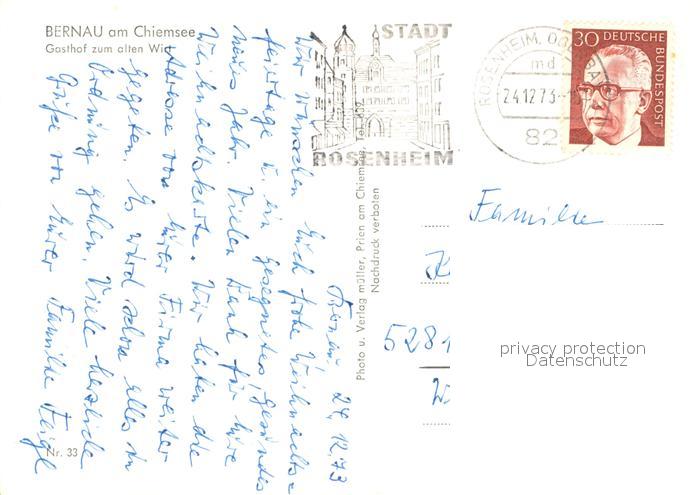 BERNAU am Chiemsee
Gasthof zum alten Wirt
Nr. 33
Bernau, 24.12.73
Wir wünschen Euch frohe Weihnachts-
feiertage u. ein gesegnetes, gesundes
neues Jahr. Vielen Dank für Eure
Weihnachtskarte. Wir haben die
Adresse von Eurer Firma weiter
gegeben. Es wird schon alles in
Ordnung gehen. Viele herzliche
Grüße von Eurer Familie
Photo u. Verlag müller, Prien am Chiemsee, Tel. 632
Nachdruck verboten
STADT
ROSENHEIM
ROSENHEIM, OBERBAY
md
24.12.73
82
30 DEUTSCHE
BUNDESPOST
Familie
5281
privacy protection
Datenschutz